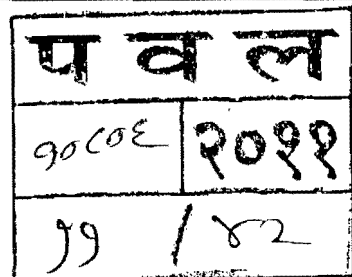 प व ल
१०८०६ २०११
११ / ४२